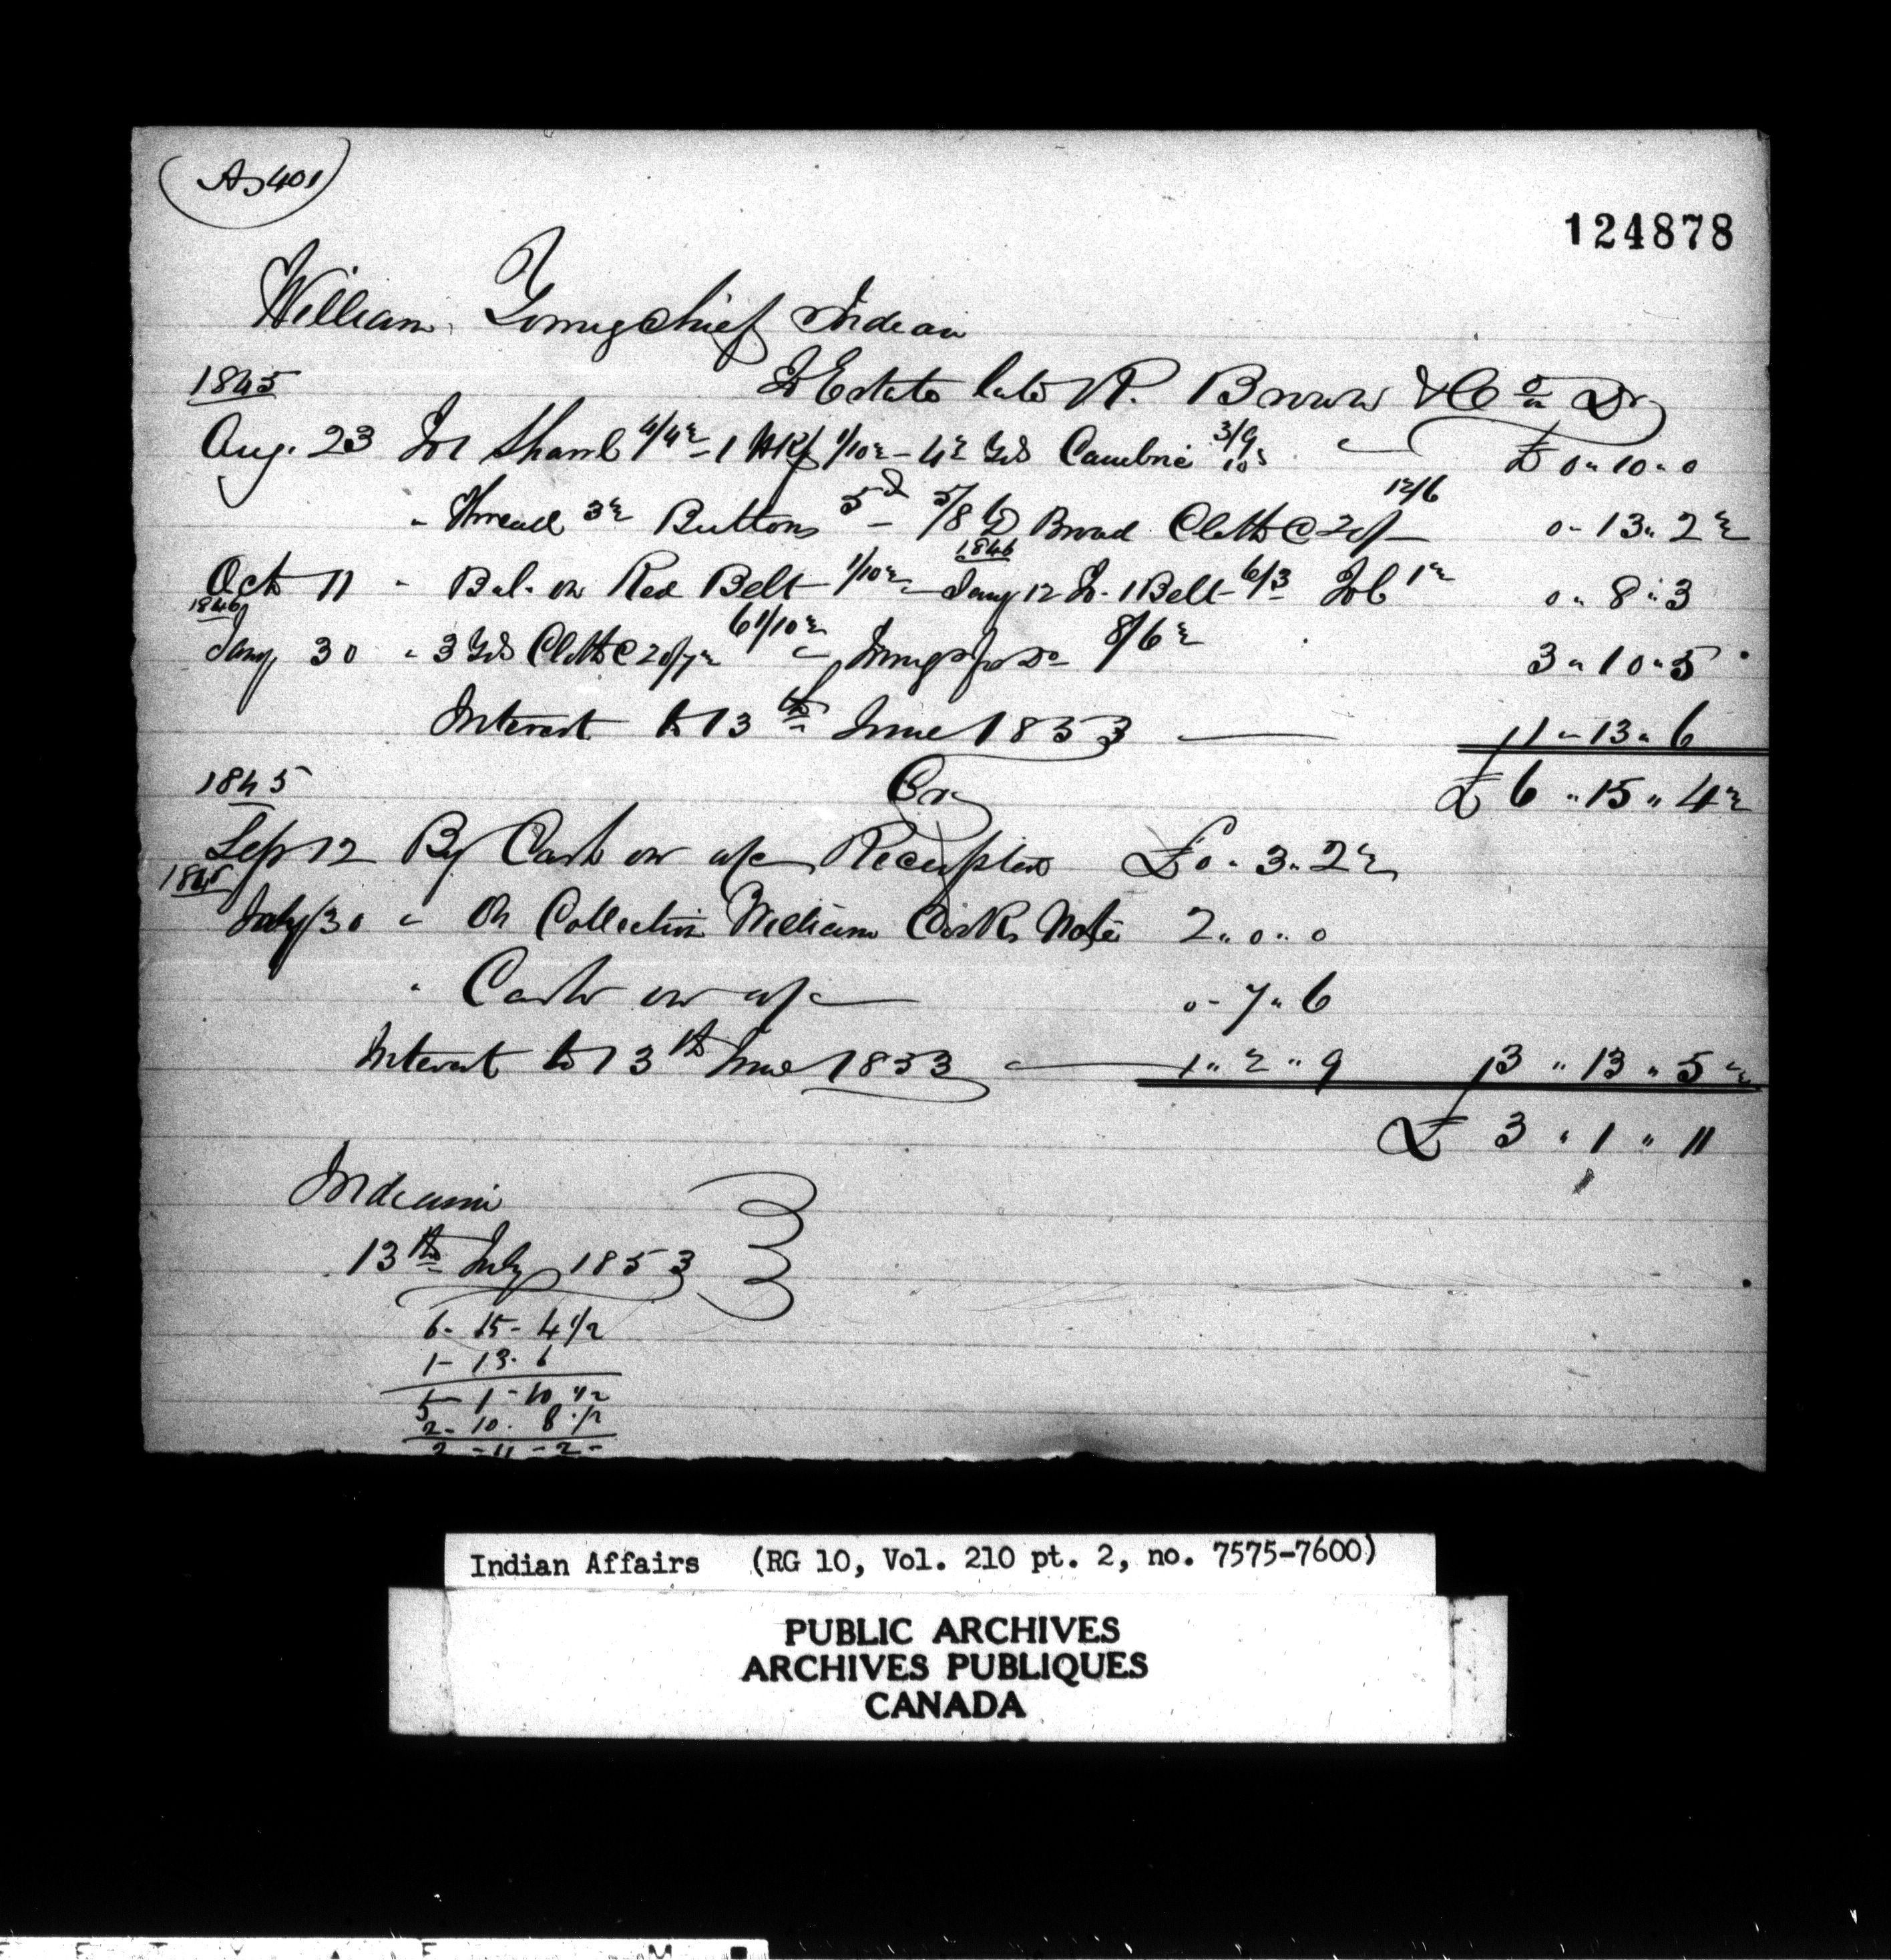 (A 5401)
124878
William Youngchief Indian
1845
To Estate late R. Brown & Co Dr
Aug. 23 To 1 Shawl 4/4½ - 1 Hkf 1/10½ - 4½ Yds Cambric 3/9 £ 0 " 10 " 0
" Thread 3½ Buttons 5d - 5/8 Yd Broad Cloth @ 20/- 12/6 0 - 13 " 2½
1846
Oct 11 " Bal. on Red Belt 1/10½ Jany 12 To 1 Belt 6/3 1½ 0 " 8 " 3
1846
Jany 30 " 3 Yds Cloth @ 20/7½ 61/10½ " 8/6½ 3 " 10 " 5
Interest to 13th June 1853 1 " 13 " 6
1845 Cr £ 6 " 15 " 4½
Sep 12 By Cash on a/c £ 0 " 3 " 2½
July 30 " On Collection William Note 2 " 0 " 0
" Cash on a/c 0 " 7 " 6
Interest to 13th June 1853 1 " 2 " 9 3 " 13 " 5½
£ 3 " 1 " 11
Indiana
13th July 1853
6 - 15 - 4 1/2
1 - 13 - 6
5 - 1 - 10 1/2
2 - 10 - 8 1/2
2 - 11 - 2 -
Indian Affairs (RG 10, Vol. 210 pt. 2, no. 7575-7600)
PUBLIC ARCHIVES
ARCHIVES PUBLIQUES
CANADA